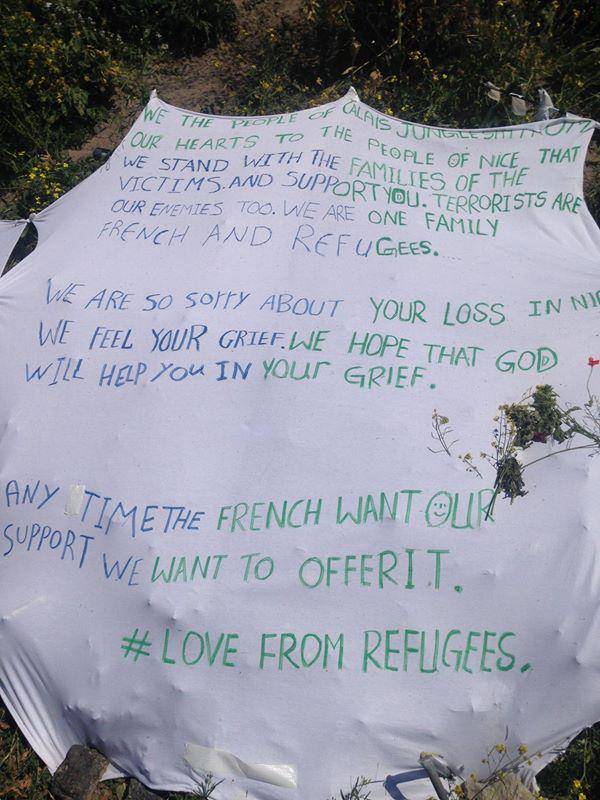 WE THE PEOPLE OF CALAIS JUNGLE
OUR HEARTS TO THE PEOPLE OF NICE THAT
WE STAND WITH THE FAMILIES OF THE
VICTIMS. AND SUPPORT YOU. TERRORISTS ARE
OUR ENEMIES TOO. WE ARE ONE FAMILY
FRENCH AND REFUGEES.
WE ARE SO SOrrY ABOUT YOUR LOSS IN
WE FEEL YOUR GRIEF. WE HOPE THAT GOD
WILL HELP YOU IN YOUr GRIEF.
ANY TIME THE FRENCH WANT OUR
SUPPORT WE WANT TO OFFER IT.
# LOVE FROM REFUGEES.